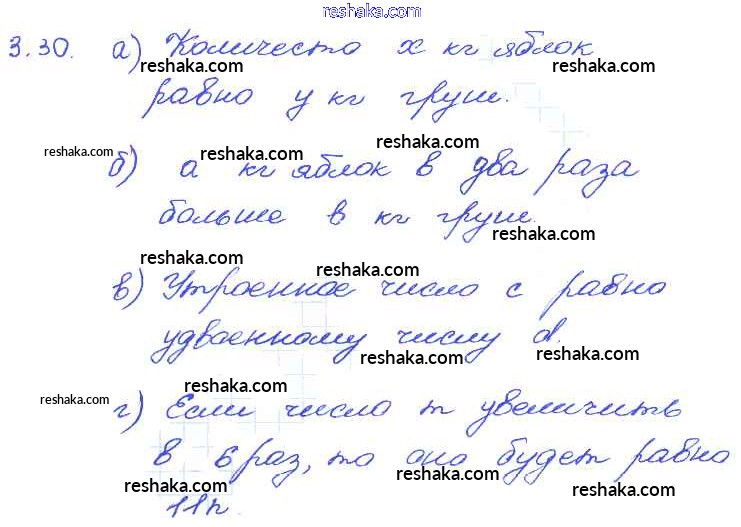 reshaka.com
3.30. а) Количесто x кг яблок
reshaka.com reshaka.com
равно y кг груш.
reshaka.com reshaka.com reshaka.com
б) a кг яблок в два раза
больше b кг груш.
reshaka.com reshaka.com
reshaka.com
в) Утроенное число c равно
удвоенному числу d.
reshaka.com reshaka.com
reshaka.com reshaka.com
г) Если число m увеличить
в 6 раз, то оно будет равно
reshaka.com reshaka.com
11n.